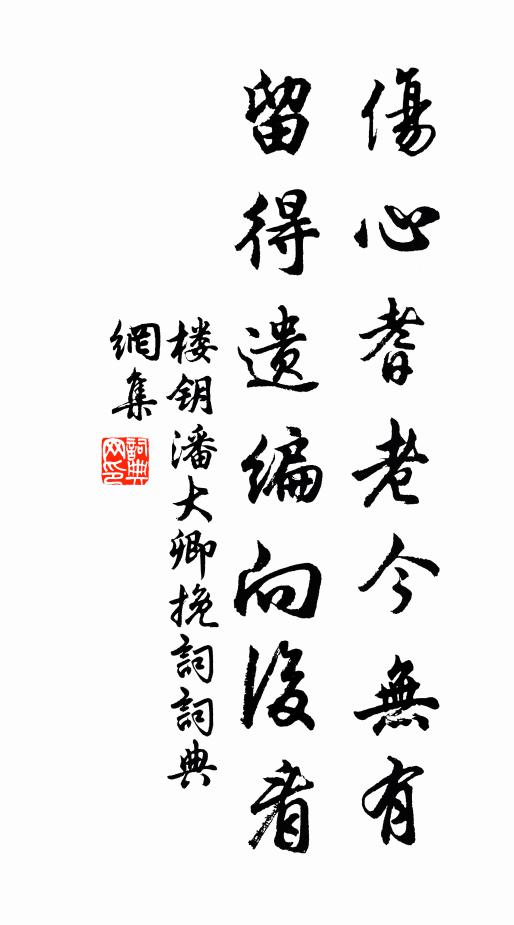 傷心耆老今無有
留得遺编向後看
楼钥潘大卿挽詞詞典
網集
詞典网印